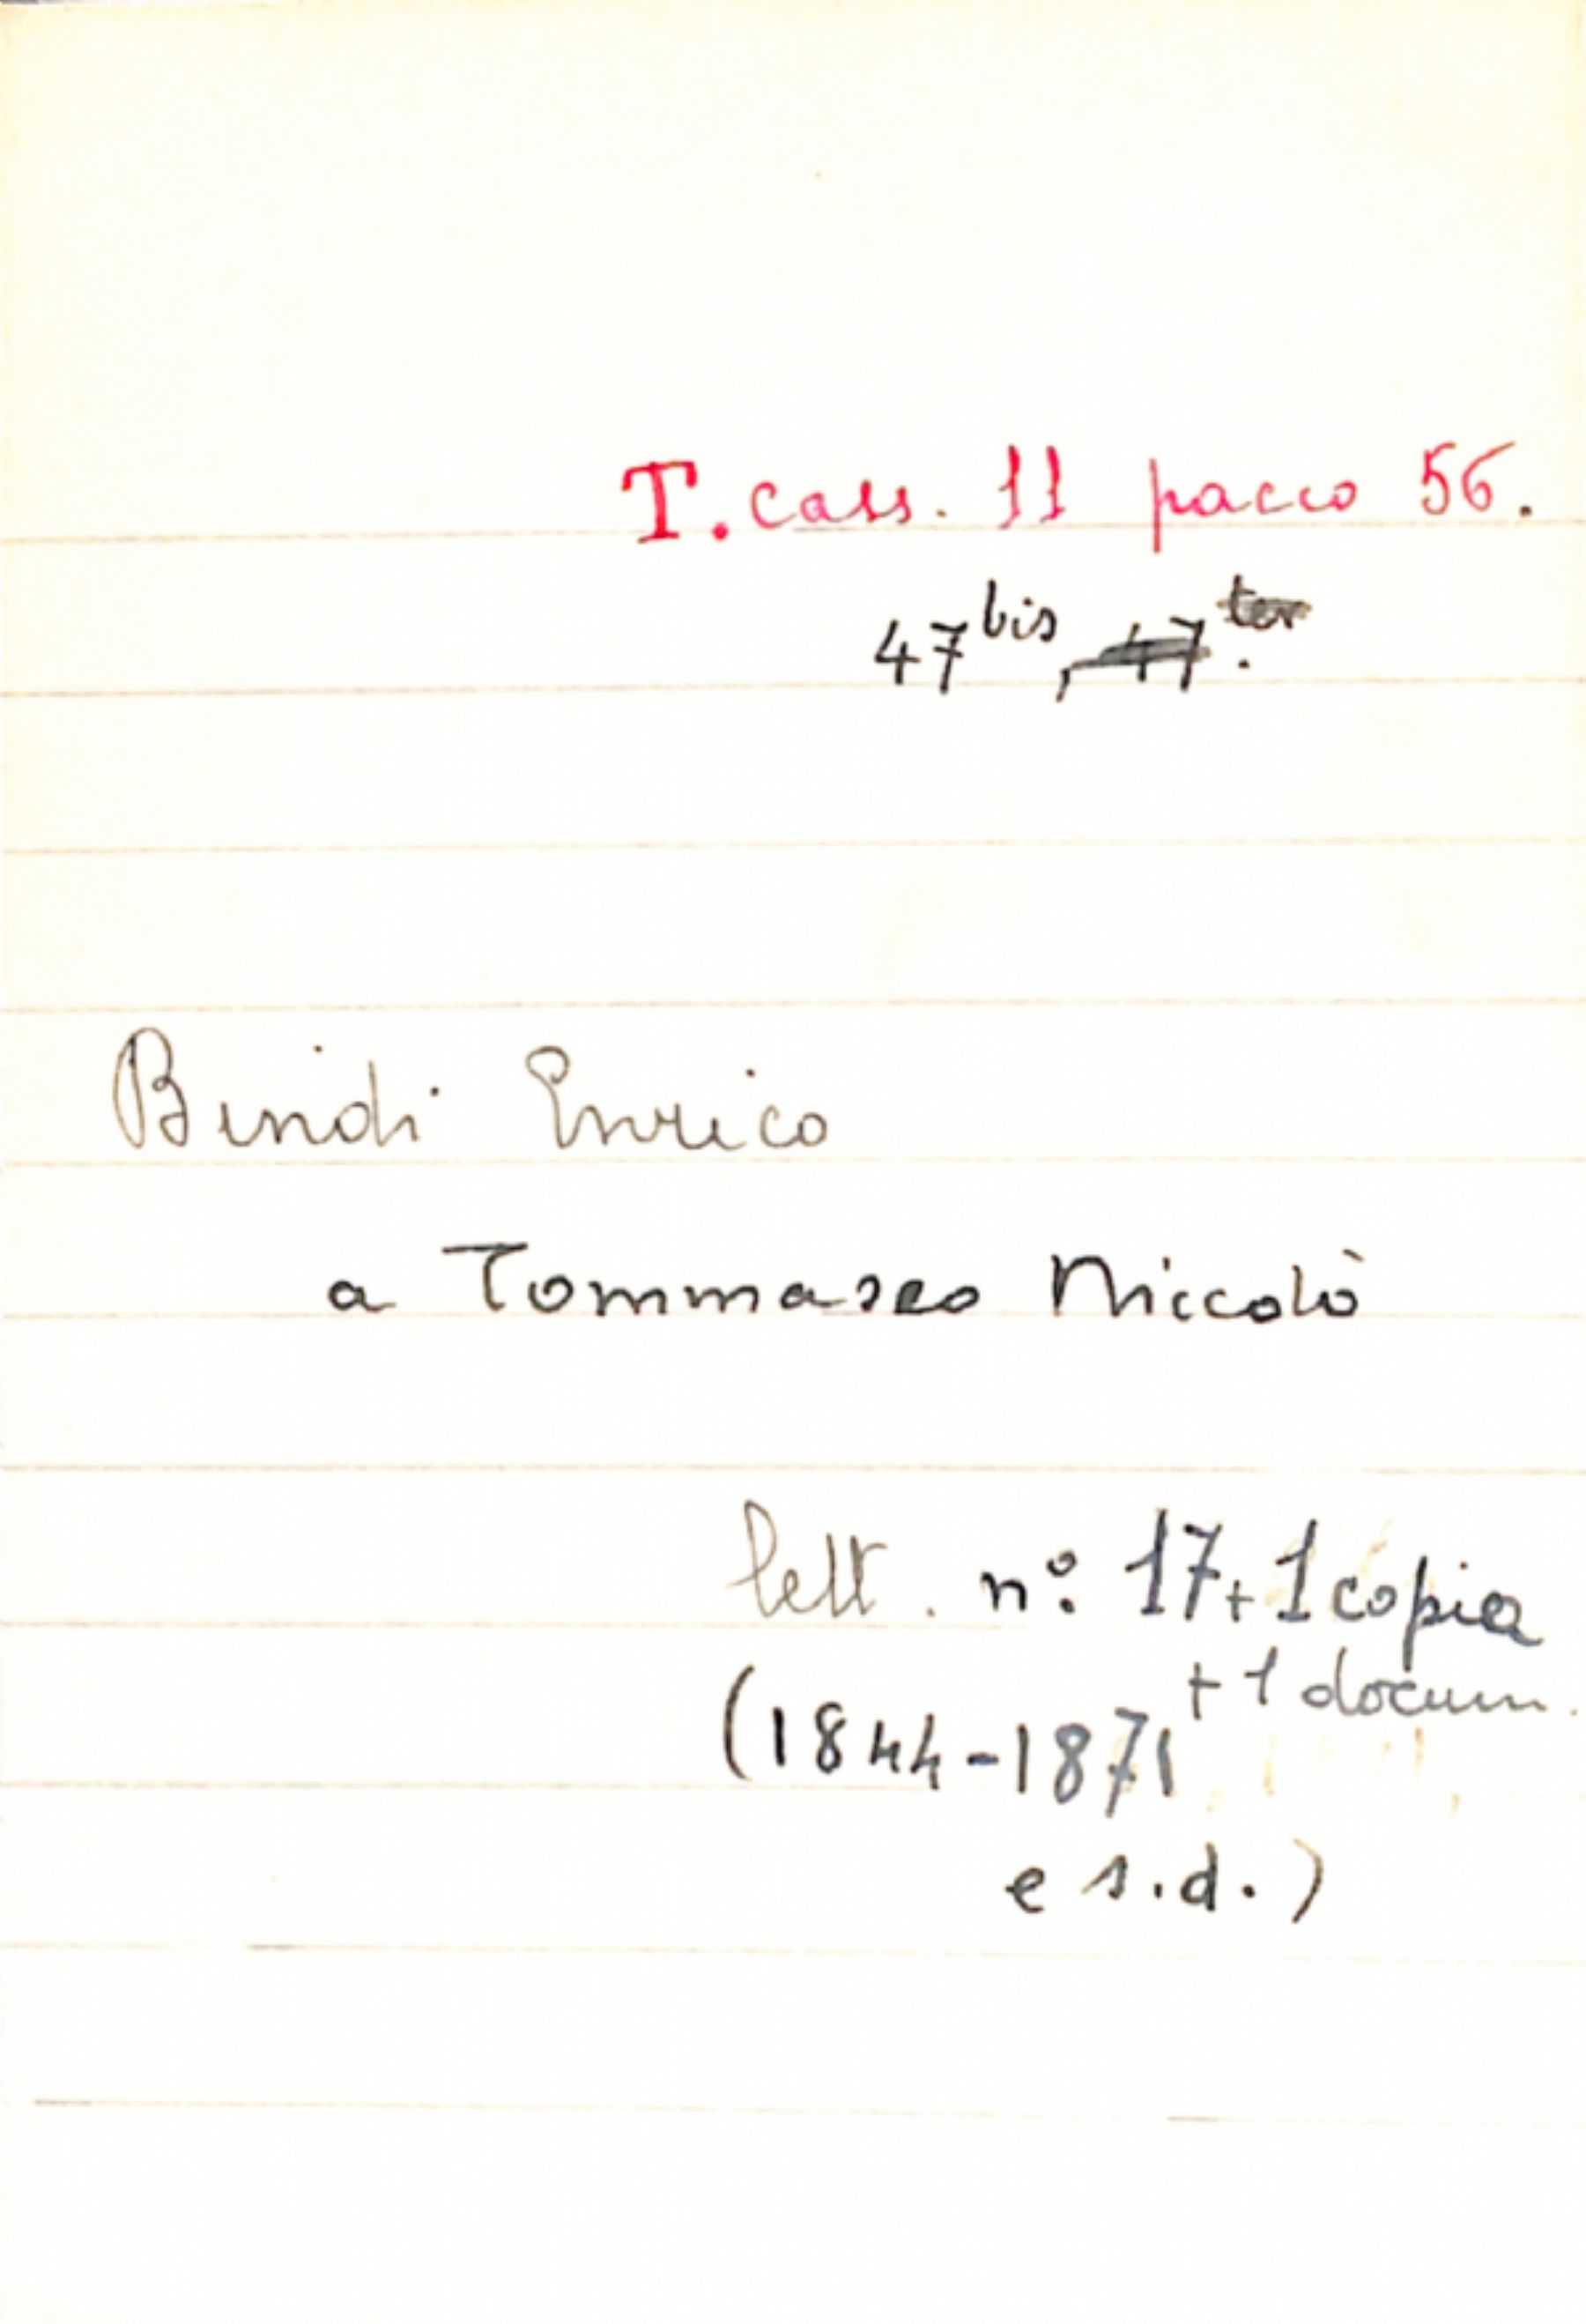 T. cass. 11 pacco 56.
47 bis, 47 ter.
Bindi Enrico
a Tommaseo Niccolò
lett. n° 17 + 1 copia
+ 1 docum.
(1844-1871
e s.d.)